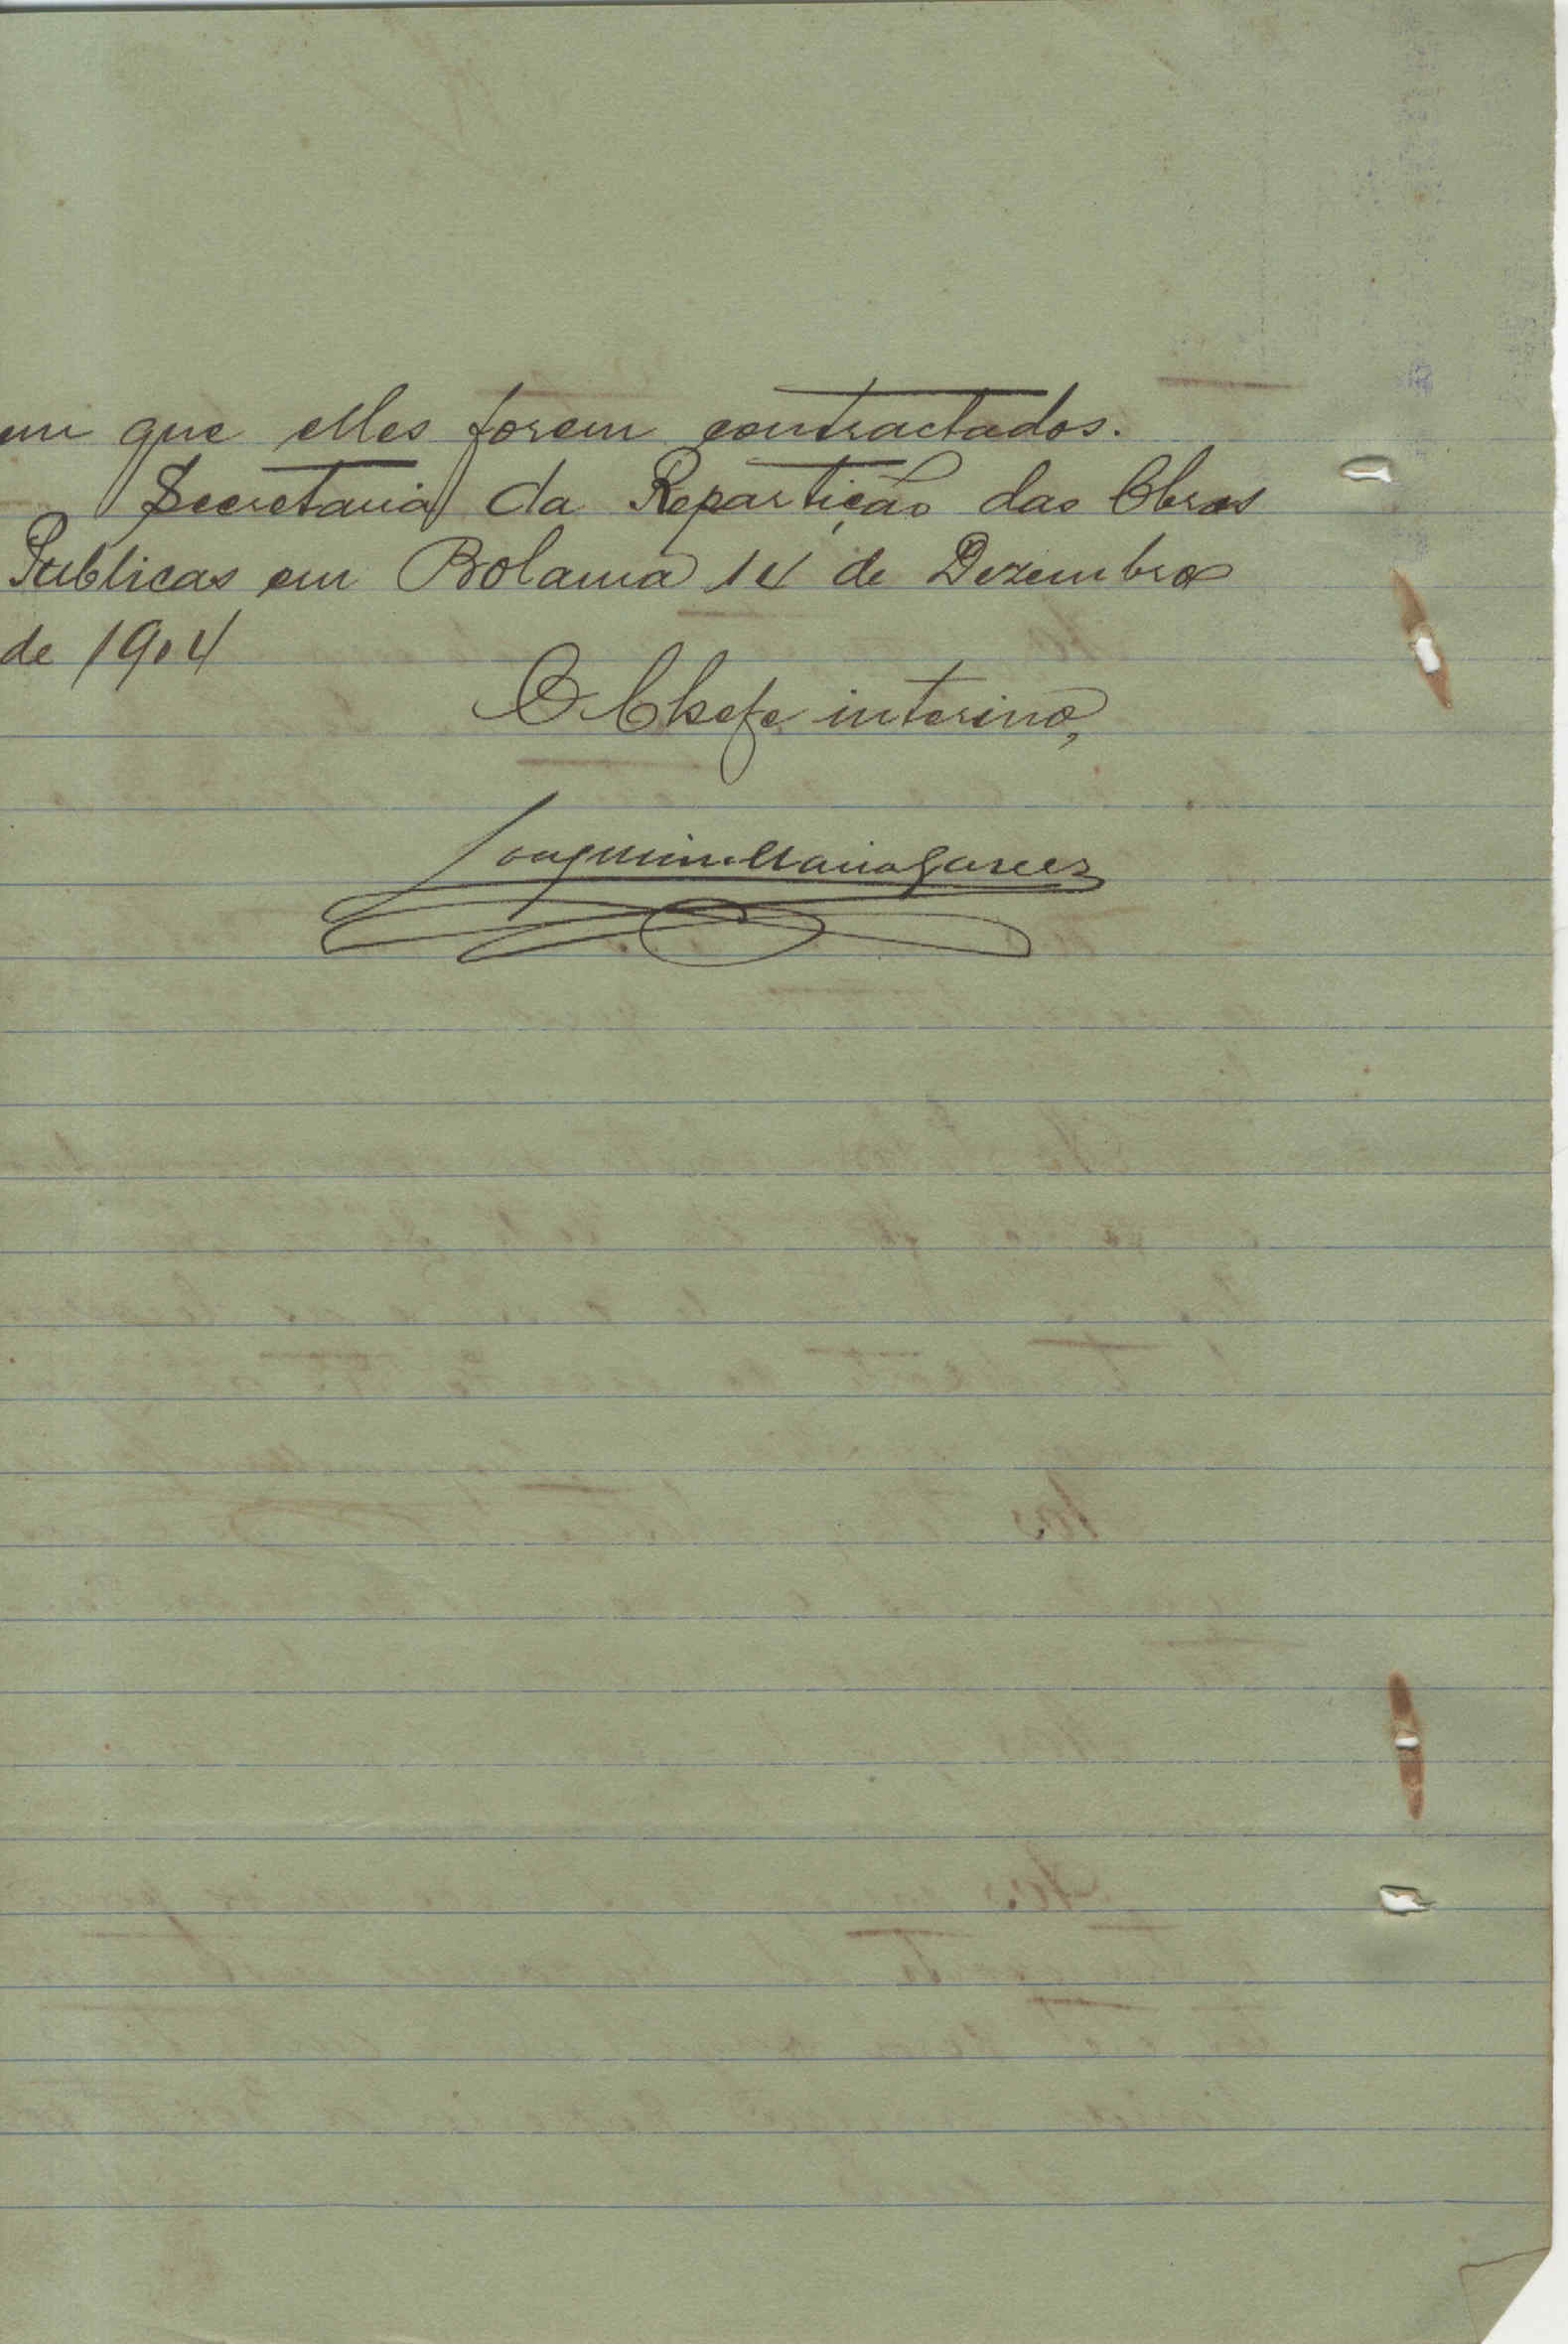 em que elles forem contractados.
Secretaria da Repartição das Obras
Publicas em Bolama 14 de Dezembro
de 1904
O Chefe interino,
Joaquim Maria Garcez